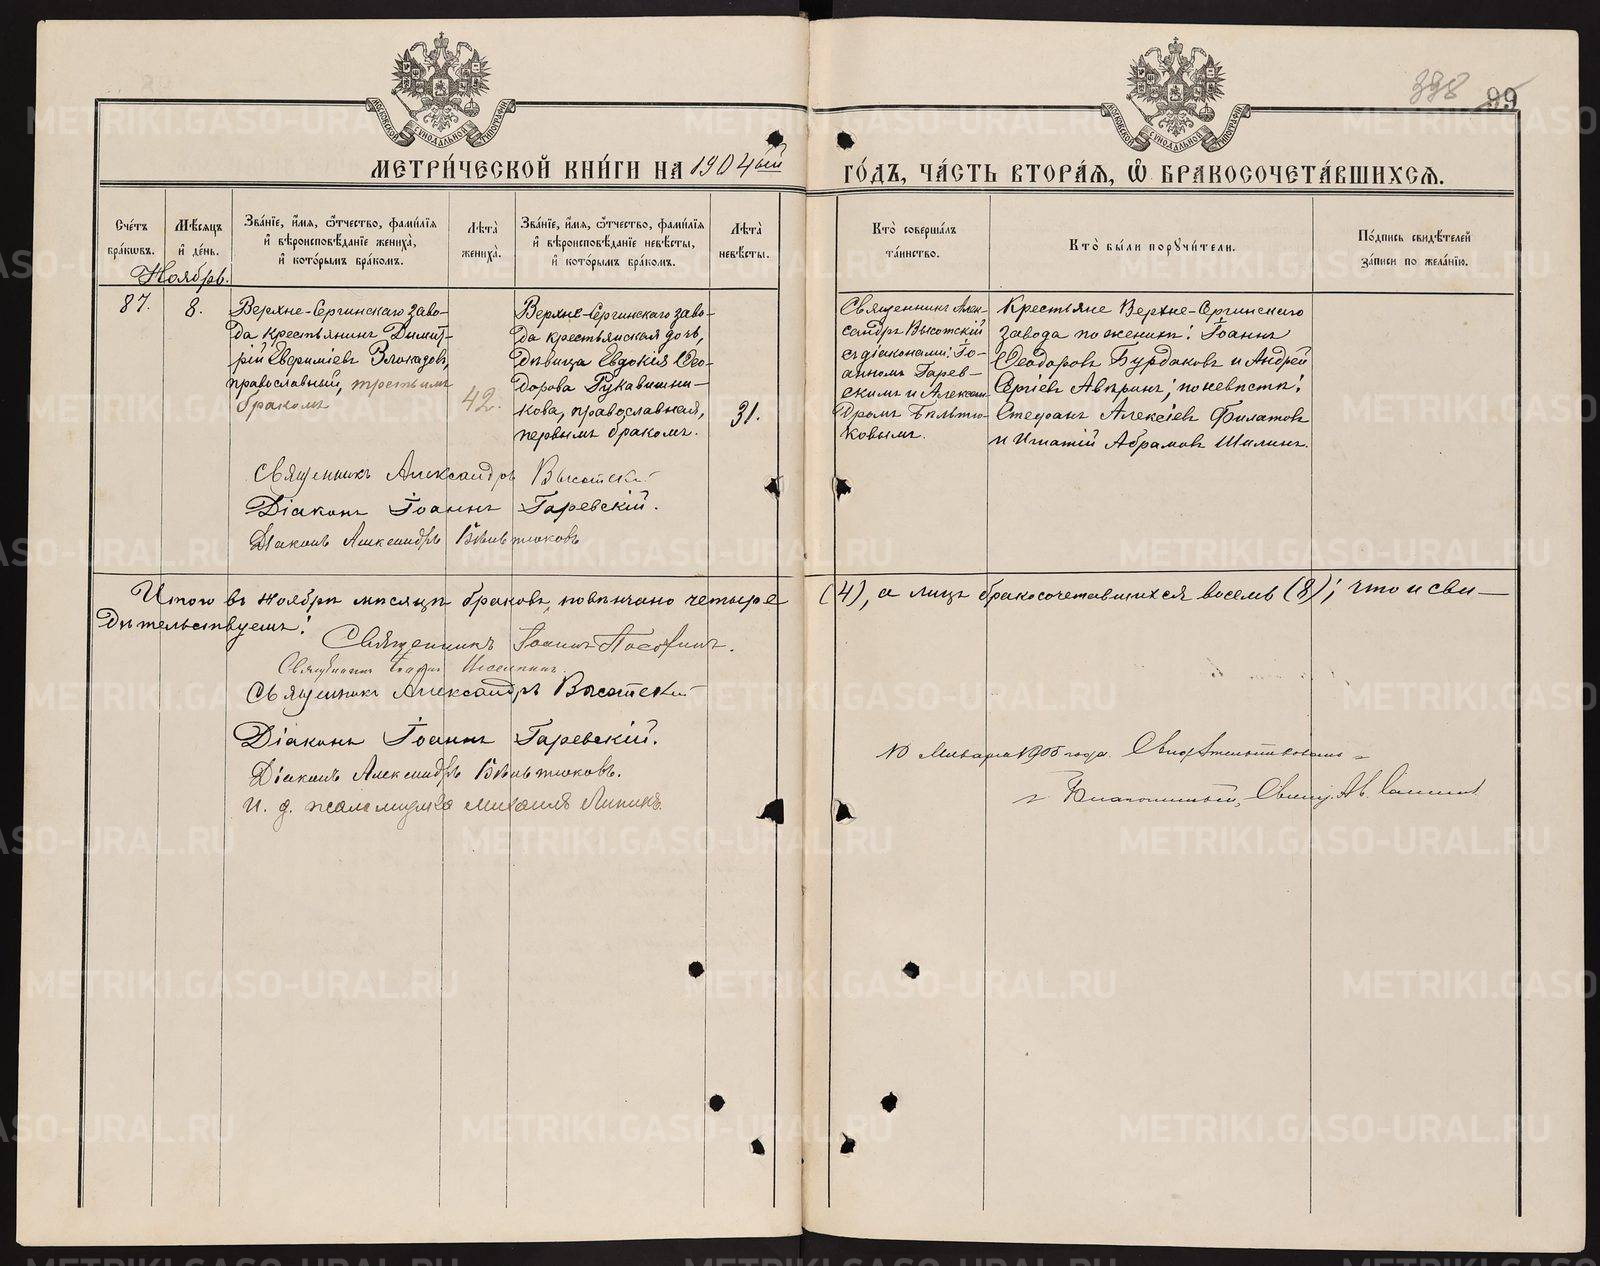 398 99
МОСКОВСКОЙ СѴНОДАЛЬНОЙ ТИПОГРАФІИ
МОСКОВСКОЙ СѴНОДАЛЬНОЙ ТИПОГРАФІИ
МЕТРИ́ЧЕСКОЙ КНИ́ГИ НА 1904ый ГО́ДЪ, ЧА́СТЬ ВТОРА́Я, Ѽ БРАКОСОЧЕТА́ВШИХСЯ.
Сче́тъ бра́кѡвъ.
Мѣ́сяцъ и҆ де́нь.
Зва́нїе, и҆́мя, ѻ҆́тчество, фами́лїя и҆ вѣроисповѣ́данїе жениха̀, и҆ кото́рымъ бра́комъ.
Лѣта̀ жениха̀.
Зва́нїе, и҆́мя, ѻ҆́тчество, фами́лїя и҆ вѣроисповѣ́данїе невѣ́сты, и҆ кото́рымъ бра́комъ.
Лѣта̀ невѣ́сты.
Кто̀ соверша́лъ та́инство.
Кто̀ бы́ли порꙋчи́тели.
По́дпись свидѣ́телей за́писи по жела́нїю.
Ноябрь.
87.
8.
Верхне-Сергинскаго заво-
да крестьянинъ Димит-
рій Евфиміевъ Злоказовъ,
православный, третьимъ
бракомъ
42.
Верхне-Сергинскаго заво-
да крестьянская дочь,
дѣвица Евдокія Ѳео-
дорова Рукавишни-
кова, православная,
первымъ бракомъ.
31.
Священникъ Алек-
сандръ Высотскій
съ діаконами: Іо-
анномъ Гарев-
скимъ и Алексан-
дромъ Бѣльтю-
ковымъ.
Крестьяне Верхне-Сергинскаго
завода по женихѣ: Іоаннъ
Ѳеодоровъ Бурдаковъ и Андрей
Сергіевъ Авѣринъ; по невѣстѣ:
Стефанъ Алексіевъ Филатовъ
и Игнатій Абрамовъ Шилинъ.
Священникъ Александръ Высотскій
Діаконъ Іоаннъ Гаревскій.
Діаконъ Александръ Бѣльтюковъ
Итого въ Ноябрѣ мѣсяцѣ браковъ повѣнчано четыре (4), а лицъ бракосочетавшихся восемь (8); что и сви-
дѣтельствуемъ:
Священникъ Іоаннъ
Священникъ
Священникъ Александръ Высотскій
Діаконъ Іоаннъ Гаревскій.
Діаконъ Александръ Бѣльтюковъ.
И. д. псаломщика Михаилъ Липинъ.
10 Января 1905 года. Свидѣтельствовалъ
Благочинный, Свящ. Ав.
METRIKI.GASO-URAL.RU